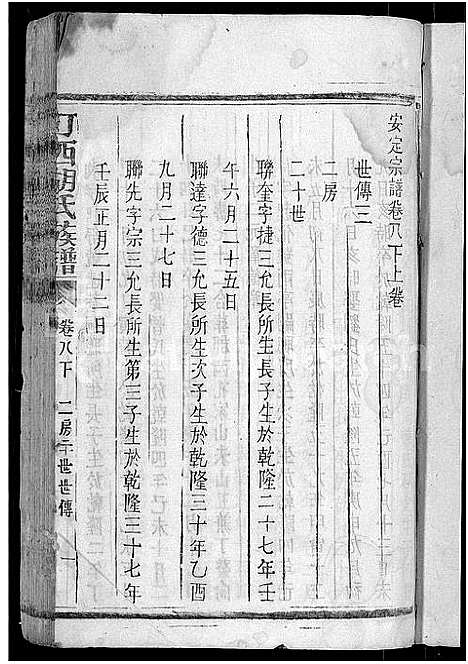 安定宗譜卷八下上卷
世傳三
二房
二十世
聯奎字捷三允長所生長子生於乾隆二十七年壬
午六月二十五日
聯達字德三允長所生次子生於乾隆三十年乙酉
九月二十七日
聯先字宗三允長所生第三子生於乾隆三十七年
壬辰正月二十二日
西胡氏族譜
卷八下 二房二十世世傳 一